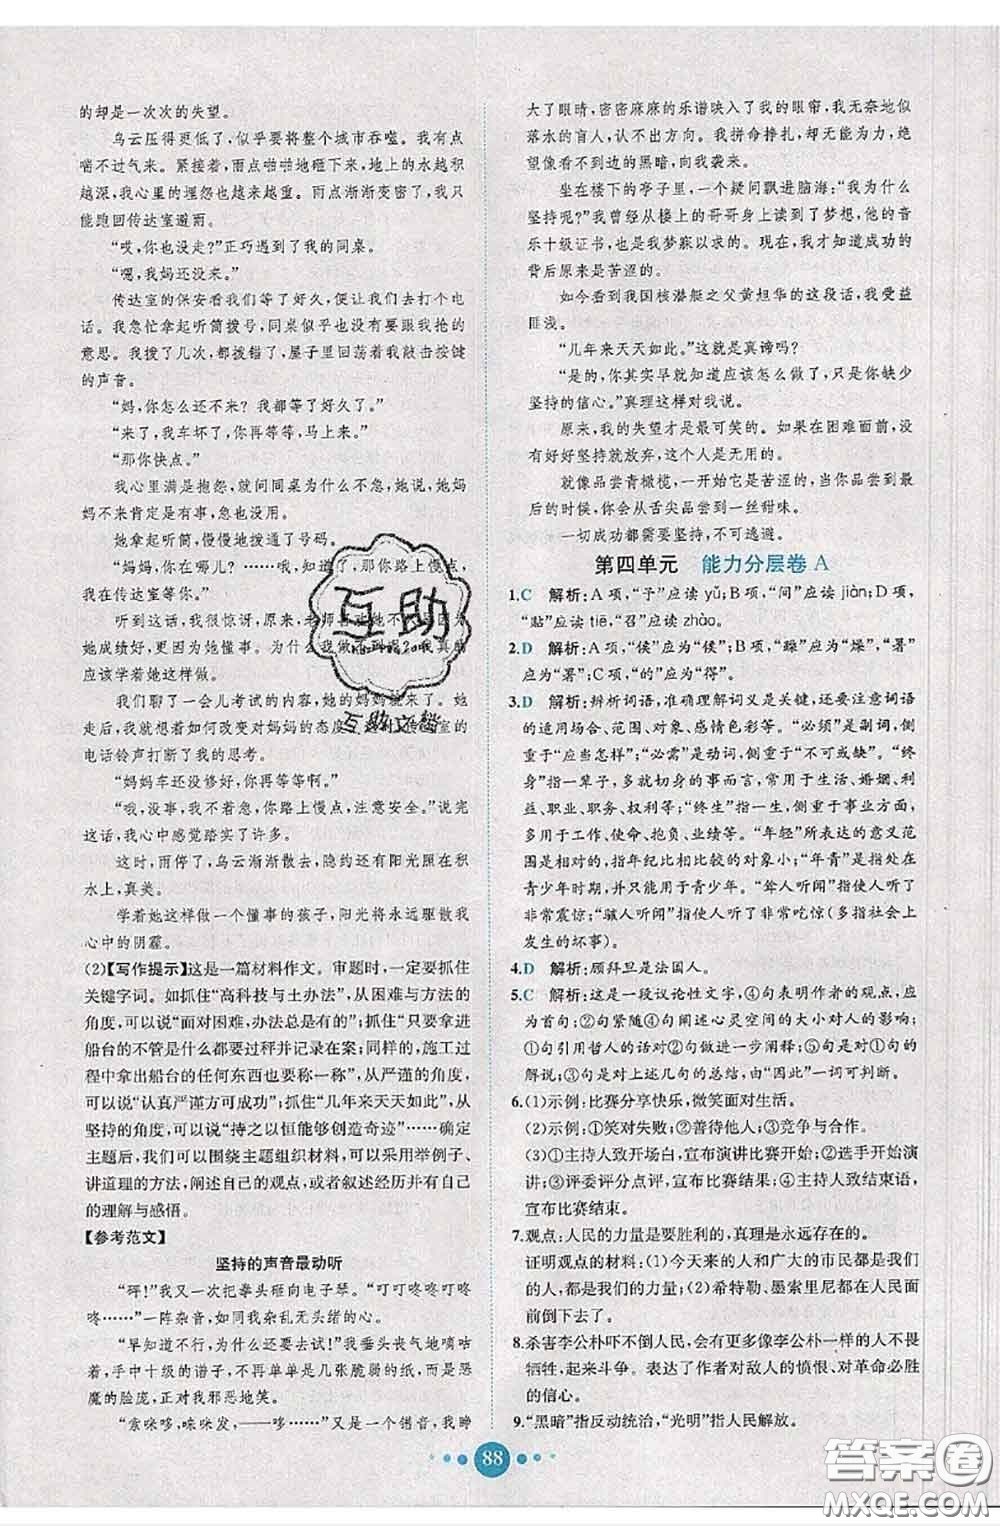 的却是一次次的失望。
乌云压得更低了,似乎要将整个城市吞噬。我有点
喘不过气来。紧接着,雨点啪啪地砸下来,地上的水越积
越深,我心里的埋怨也越来越重。雨点渐渐变密了,我只
能跑回传达室避雨。
“哎,你也没走?”正巧遇到了我的同桌。
“嗯,我妈还没来。”
传达室的保安看我们等了好久,便让我们去打个电
话。我急忙拿起听筒拨号,同桌似乎并没有要跟我抢的
意思。我拨了几次,都拨错了,屋子里回荡着我敲击按键
的声音。
“妈,你怎么还不来?我都等了好久了。”
“来了,我车坏了,你再等等,马上来。”
“那你快点。”
我心里满是抱怨,就问同桌为什么不急,她说,她妈
妈不来肯定是有事,急也没用。
她拿起听筒,慢慢地拨了号码。
“妈妈,你在哪儿?……哦,知道了,那你路上慢点,我
在传达室等你。”
听到这话,我很惊讶,原来,老师喜欢她不仅因为
她成绩好,更因为她懂事。为什么我做不到呢?我真的
应该学着她这样做。
我们聊了一会儿考试的内容,她的妈妈就来了。她
走后,我开始想着如何改变对妈妈的态度。这时,传达室的
电话铃声打断了我的思考。
“妈妈车还没修好,你再等等啊。”
“哦,没事,我不着急,你路上慢点,注意安全。”说完
这话,我心中感觉踏实了许多。
这时,雨停了,乌云渐渐散去,隐约还有阳光照在积
水上,真美。
学着她这样做一个懂事的孩子,阳光将永远驱散我
心中的阴霾。
(2)【写作提示】这是一篇材料作文。审题时,一定要抓住
关键字词。如抓住“高科技与土办法”,从困难与方法的
角度,可以说“面对困难,办法总是有的”;抓住“只要拿进
船台的不管是什么都要过秤并记录在案;同样的,施工过
程中拿出船台的任何东西也都要称一称”,从严谨的角度,
可以说“认真严谨方可成功”;抓住“几年来天天如此”,从
坚持的角度,可以说“持之以恒能够创造奇迹”……确定
主题后,我们可以围绕主题组织材料,可以采用举例子、
讲道理的方法,阐述自己的观点,或者叙述经历并有自己
的理解与感悟。
【参考范文】
坚持的声音最动听
“砰!”我又一次把拳头砸向电子琴。“叮叮咚咚叮咚
咚……”一阵杂音,如同我杂乱无头绪的心。
“早知道不行,为什么还要去试!”我垂头丧气地嘀咕
着,手中十级的谱子,不再是简简单单几张脆弱的纸,而是恶
魔的脸庞,正对我邪恶地笑。
“索咪哆,咪咪发,——哆……”又是一个错音,我睁
大了眼睛,密密麻麻的乐谱映入了我的眼帘,我无奈地似
落水的盲人,认不出方向。我拼命挣扎,却无能为力,绝
望像看不到边的黑暗,向我袭来。
坐在楼下的亭子里,一个疑问飘进脑海:“我为什么
坚持呢?”我曾经从楼上的哥哥身上读到了梦想,他的音
乐十级证书,也是我梦寐以求的。现在,我才知道成功的
背后原来是苦涩的。
如今看到我国核潜艇之父黄旭华的这段话,我受益
匪浅。
“几年来天天如此。”这就是真谛吗?
“是的,你其实早就知道应该怎么做了,只是你缺少
坚持的信心。”真理这样对我说。
原来,我的失望才是最可笑的。如果在困难面前,没
有好好坚持就放弃,这个人是无用的。
就像品尝青橄榄,一开始它是苦涩的,当你品尝到最
后的时候,你会从舌尖品尝到一丝甜味。
一切成功都需要坚持,不可逃避。
第四单元 能力分层卷A
1.C 解析:A项,“予”应读yǔ;B项,“间”应读jiàn;D项,
“贴”应读tiē,“召”应读zhào。
2.D 解析:A项,“侯”应为“候”;B项,“躁”应为“燥”,“暑”
应为“署”;C项,“的”应为“得”。
3.D 解析:辨析词语,准确理解词义是关键,还要注意词语
的适用场合、范围、对象、感情色彩等。“必须”是副词,侧
重于“应当怎样”;“必需”是动词,侧重于“不可或缺”。“终
身”指一辈子,多就切身的事而言,常用于生活、婚姻、利
益、职业、职务、权利等;“终生”指一生,侧重于事业方面,
多用于工作、使命、抱负、业绩等。“年轻”所存在的意义范
围是相对的,指年纪比相比较的对象小;“年青”是指处在
青少年时期,并只能用于青少年。“耸人听闻”指使人听了
非常震惊;“骇人听闻”指使人听了非常吃惊(多指社会上
发生的坏事)。
4.D 解析:顾拜旦是法国人。
5.C 解析:这是一段议论性文字,④句表明作者的观点,应
为首句;②句紧随④句阐述心灵空间的大小对人的影响;
①句引用哲人的话对②句做进一步阐释;⑤句是对①句的
解说;③句是对上述几句的总结,由“因此”一词可判断。
6.(1)示例:比赛分享快乐,微笑面对生活。
(2)示例:①笑对失败;②善待他人;③竞争与合作。
(3)①主持人致开场白,宣布演讲比赛开始;②选手开始演
讲;③评委评分点评,宣布比赛结果;④主持人致结束语,
宣布比赛结束。
7.观点:人民的力量是要胜利的,真理是永远存在的。
证明观点的材料:(1)今天来的人和广大的市民都是我们
的人,都是我们的力量;(2)希特勒、墨索里尼都在人民面
前倒下去了。
8.杀害李公朴吓不倒人民,会有更多像李公朴一样的人不畏
牺牲,起来斗争。表达了作者对敌人的愤恨、对革命必胜
的信心。
9.“黑暗”指反动统治,“光明”指人民解放。
88
互助
互助文档
答案圈
MXQE.COM